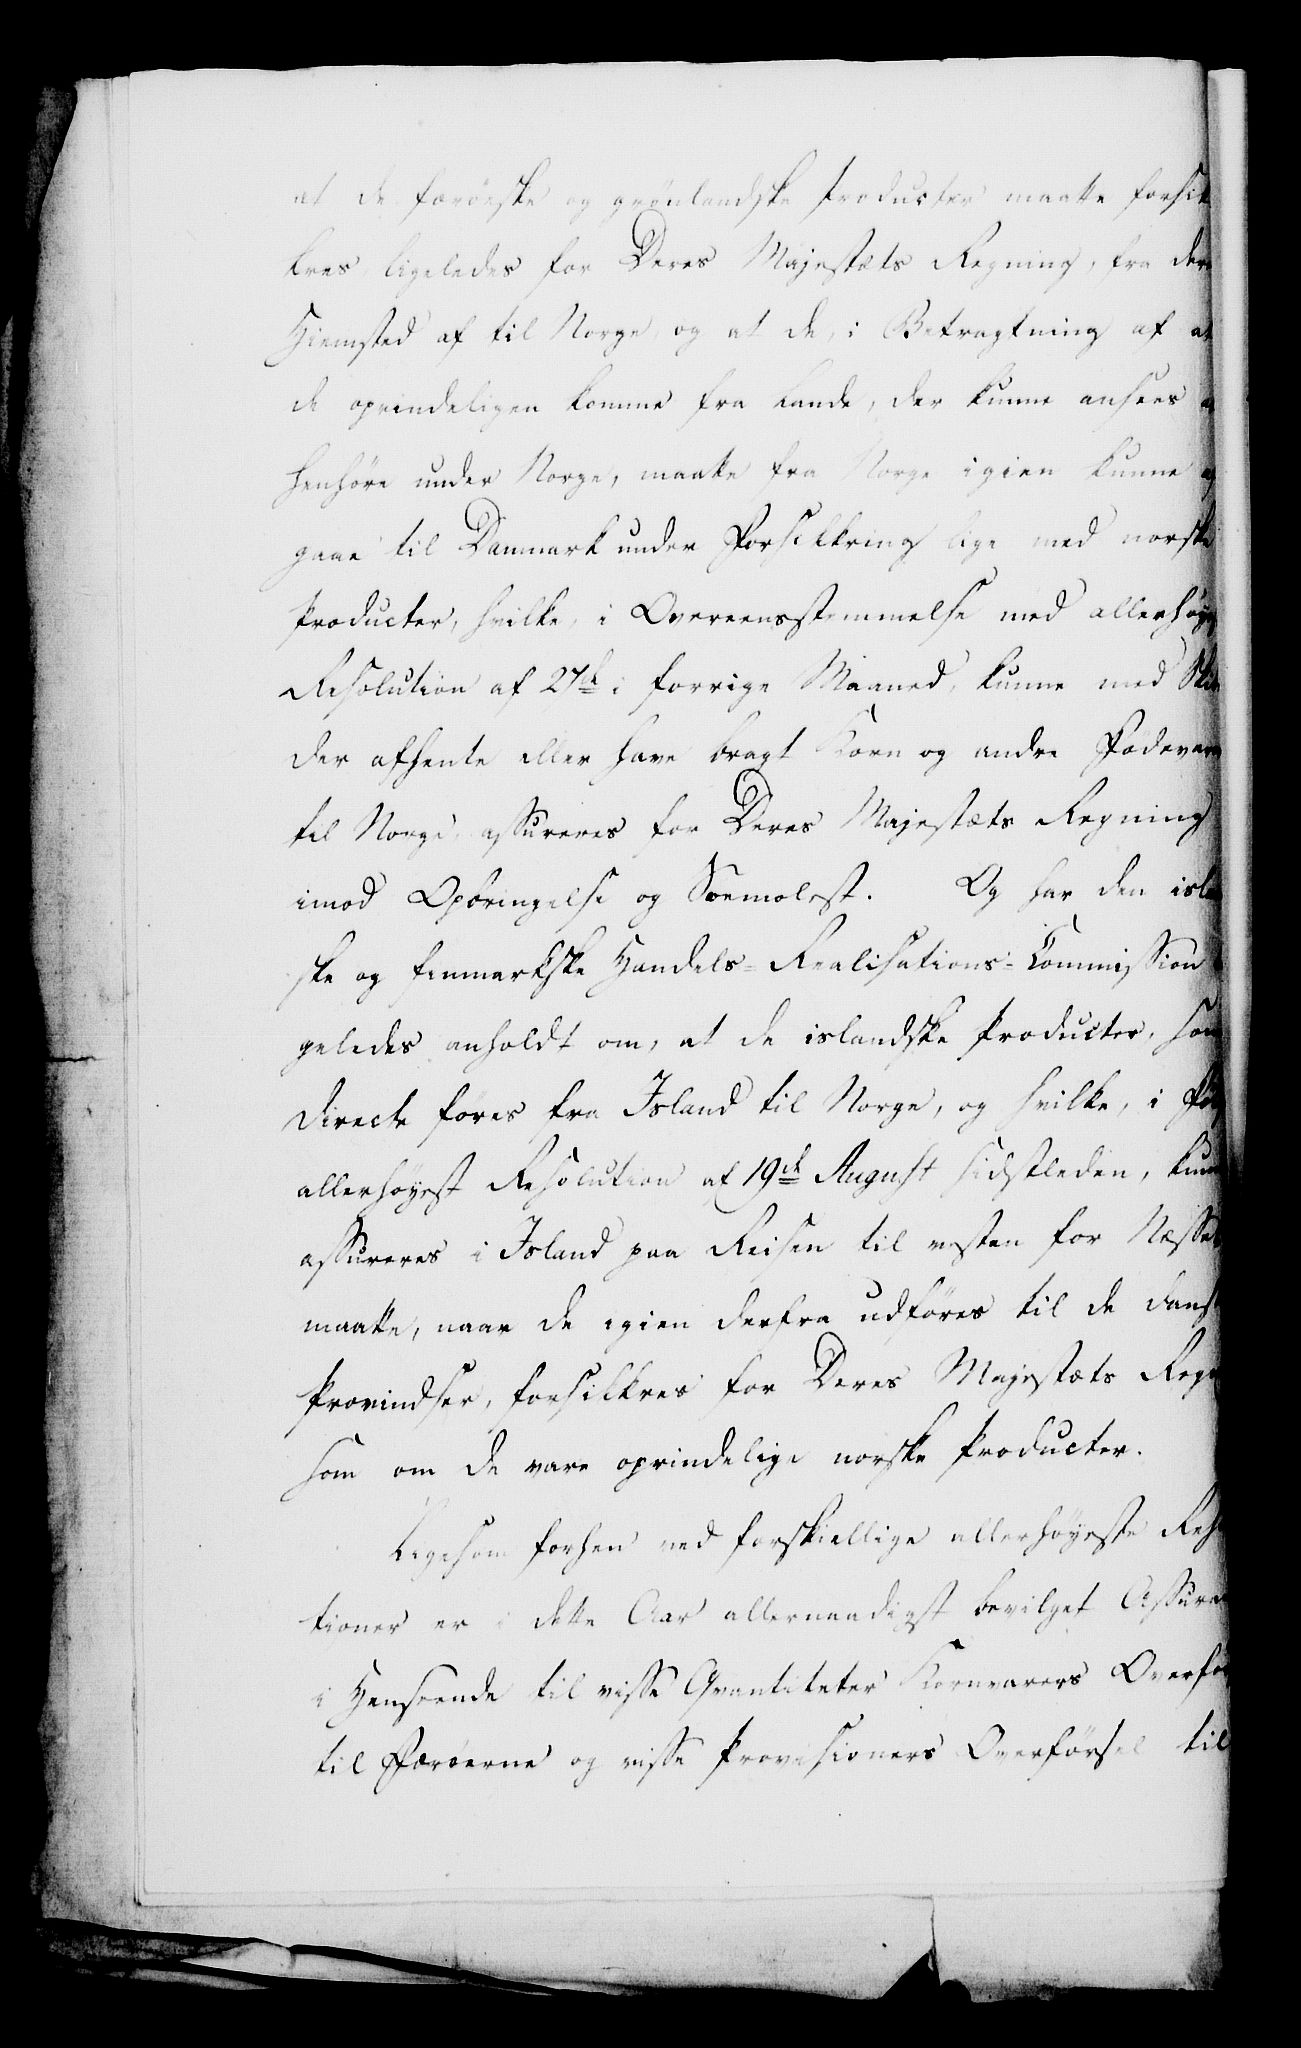 at de færöeske og grönlandske Producter maatte forsik
kres ligeledes for Deres Majestæts Regning, fra dere
Hiemsted af til Norge, og at de, i Betragtning af at
de oprindeligen komme fra Lande, der kunne ansees a
henhöre under Norge, maatte fra Norge igien kunne a
gaae til Danmark under Forsikkring lige med norske
Producter, hvilke, i Overeensstemmelse med allerhöye
Resolution af 27de i forrige Maaned, kunne med Ski
der afhente eller have bragt Korn og andre Födevare
til Norge, assureres for Deres Majestæts Regning
imod Opbringelse og Söemolest. Og har den isla
ske og finmarkske Handels-Realisations-Commission
geledes anholdt om, at de islandske Producter, som
directe föres fra Island til Norge, og hvilke, i Föl
allerhöyest Resolution af 19de August sidstleden, kun
assureres i Island paa Reisen til vesten for Næsse
maatte, naar de igien derfra udföres til de dansk
Provindser, forsikkres for Deres Majestæts Regn
som om de vare oprindelige norske Producter.
Ligesom forhen ved forskiellige allerhöyeste Reso
tioner er i dette Aar allernaadigst bevilget Assura
i Henseende til visse Qvantiteter Kornvarers Overför
til Færöerne og visse Provisioners Overförsel til